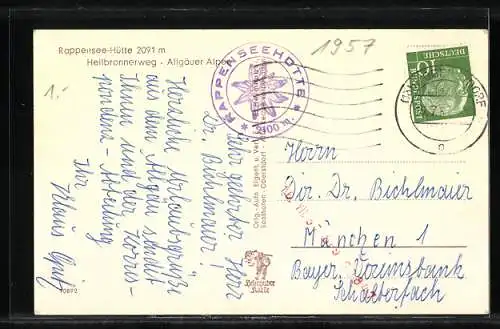 Rappensee-Hütte 2091 m
Heilbronnerweg - Allgäuer Alpen
1957
1.-
RAPPENSEEHÜTTE
2100 m.
DEUTSCHE
BUNDESPOST
10
Sehr geehrter Herr
Dr. Bichlmaier!
Herzliche Urlaubsgrüße
aus dem Allgäu sendet
Ihnen und der Korres-
pondenz-Abteilung
Ihr
Klaus
Herrn
Dir. Dr. Bichlmaier
München 1
Bayer. Vereinsbank
Schalterfach